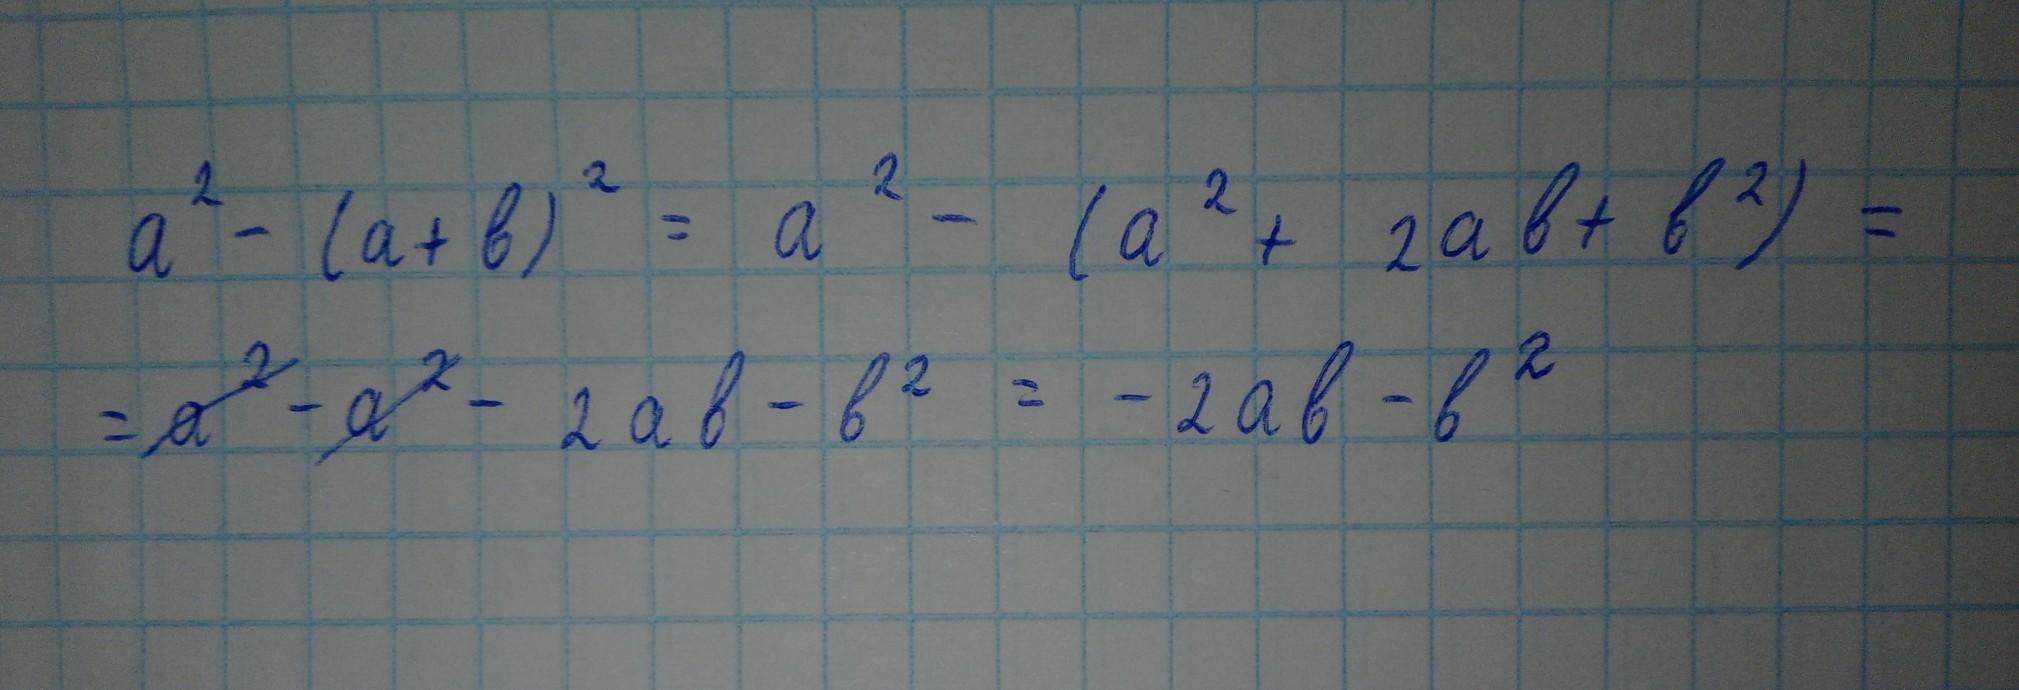 a² - (a+b)² = a² - (a² + 2ab + b²) =
= a² - a² - 2ab - b² = -2ab - b²